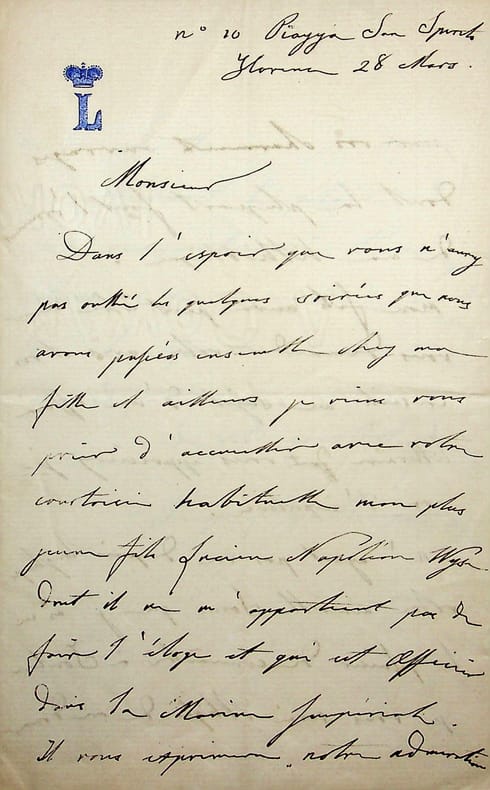 n° 10 Piazza San Spirito
Florence 28 Mars.
L
Monsieur
Dans l'espoir que vous n'avez
pas oublié les quelques soirées que nous
avons passées ensemble chez ma
fille et ailleurs je viens vous
prier d'accueillir avec votre
courtoisie habituelle mon plus
jeune fils Lucien Napoléon Wyse
dont il ne m'appartient pas de
faire l'éloge et qui est Officier
dans la Marine Impériale.
Il vous exprimera notre admiration